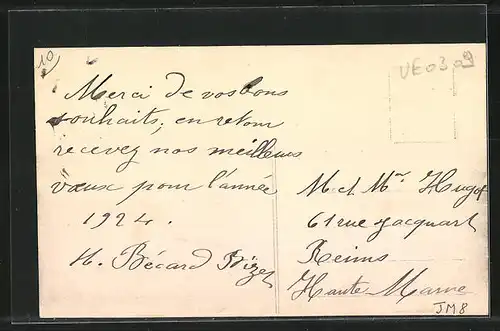 10
UE0309
Merci de vos bons
souhaits, en retour
recevez nos meilleurs
vœux pour l'année
1924.
H. Bécard Bizet
M. et Mme Hugot
61 rue Jacquart
Reims
Haute Marne
JM8